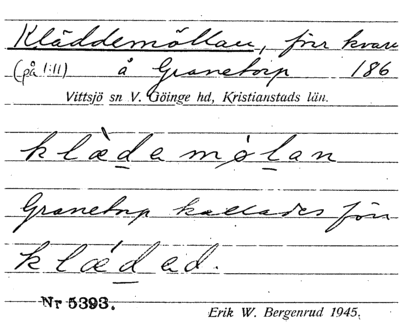 Kläddemöllan, förr kvarn
(på 1:11) å Granetorp 186
Vittsjö sn V. Göinge hd, Kristianstads län.
klæ̀damølan
Granetorp kallades förr
klǽdad.
Nr 5393.
Erik W. Bergenrud 1945.